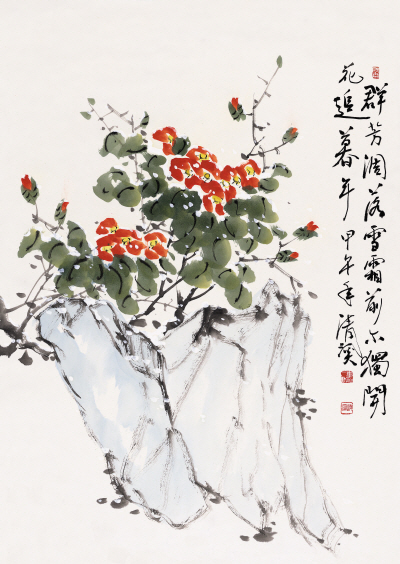 群芳凋落雪霜前 不獨開
花追暮年 甲午年 清溪